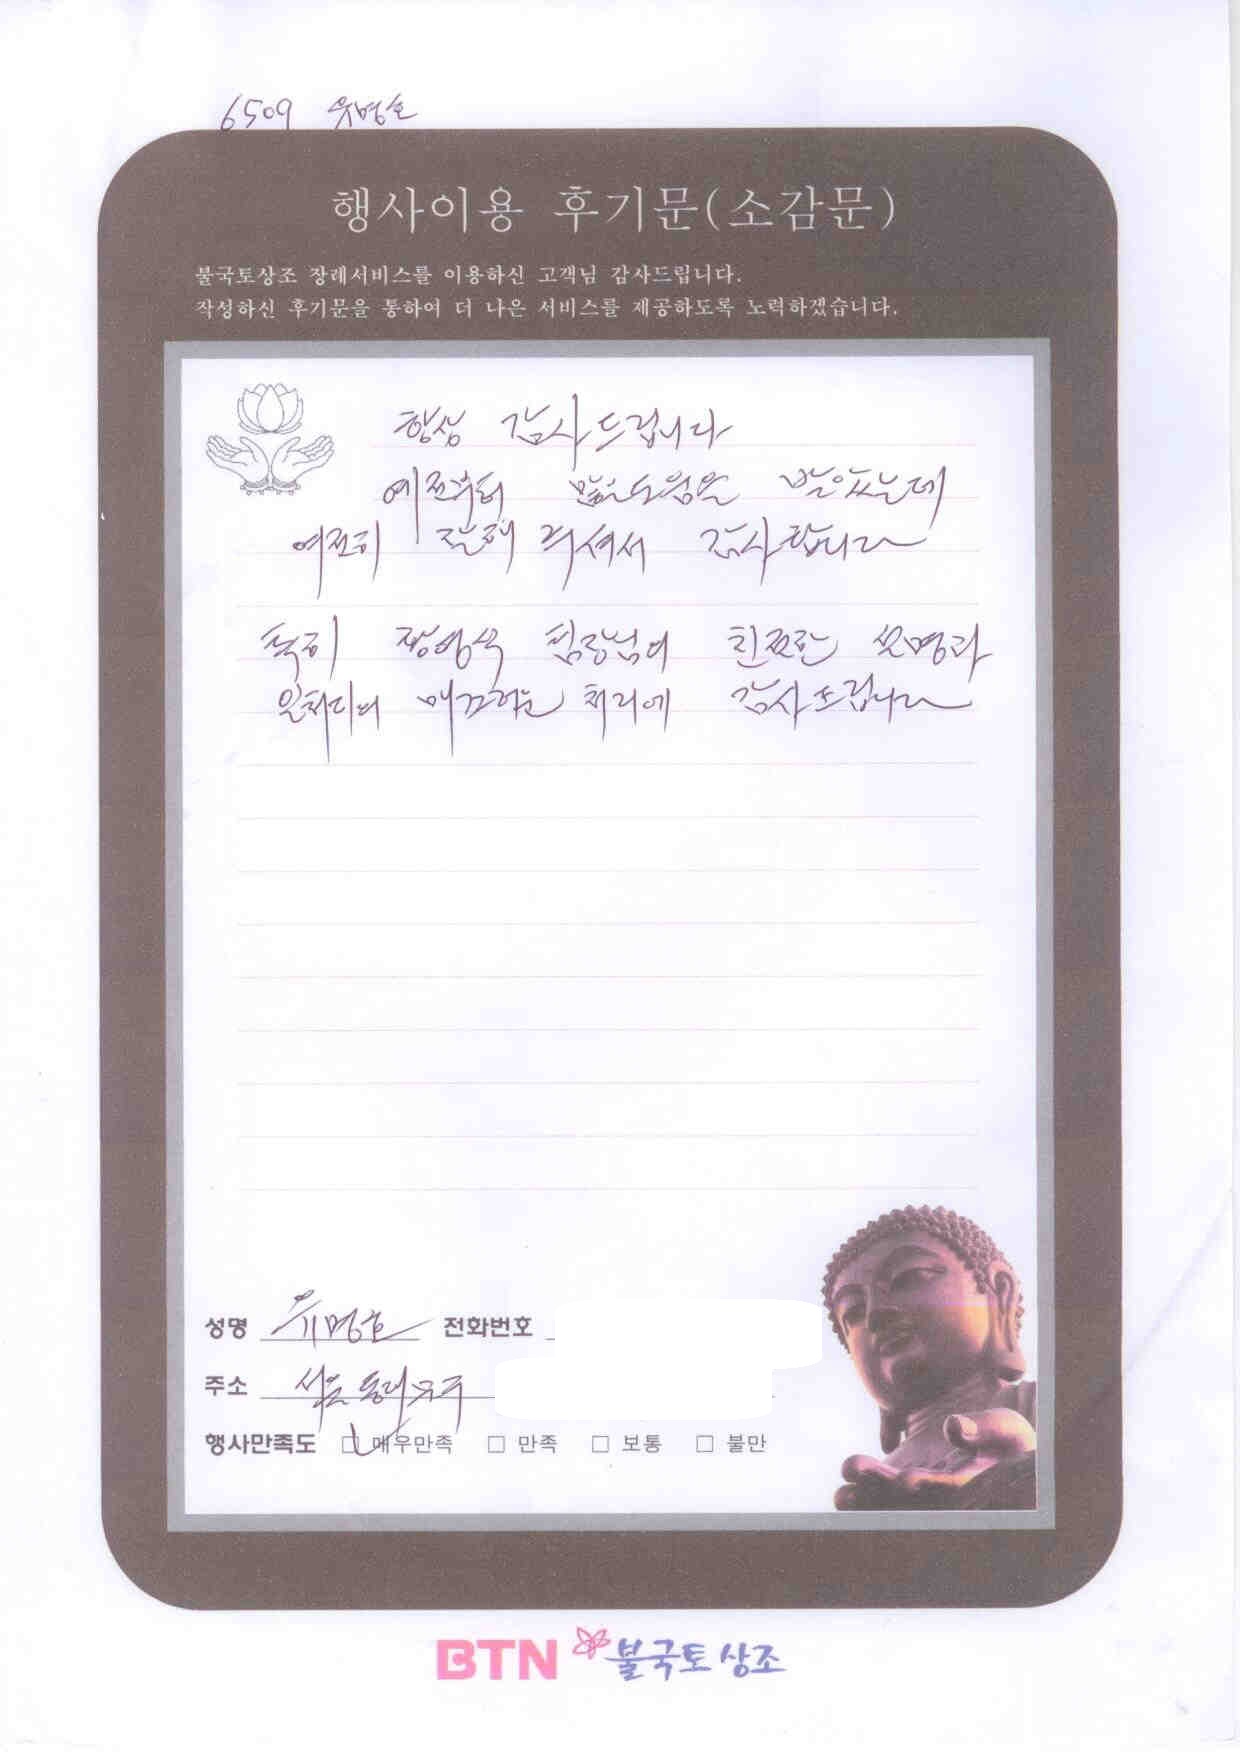 6509 유명호
행사이용 후기문(소감문)
불국토상조 장례서비스를 이용하신 고객님 감사드립니다.
작성하신 후기문을 통하여 더 나은 서비스를 제공하도록 노력하겠습니다.
항상 감사드립니다
예전부터 많은도움을 받았는데
여전히 잘해 주셔서 감사합니다
특히 장영숙 팀장님의 친절한 설명과
일처리의 매끄하는 처리에 감사드립니다
성명 유명호 전화번호
주소 서울 동대문구
행사만족도 □ 매우만족 □ 만족 □ 보통 □ 불만
BTN 불국토상조